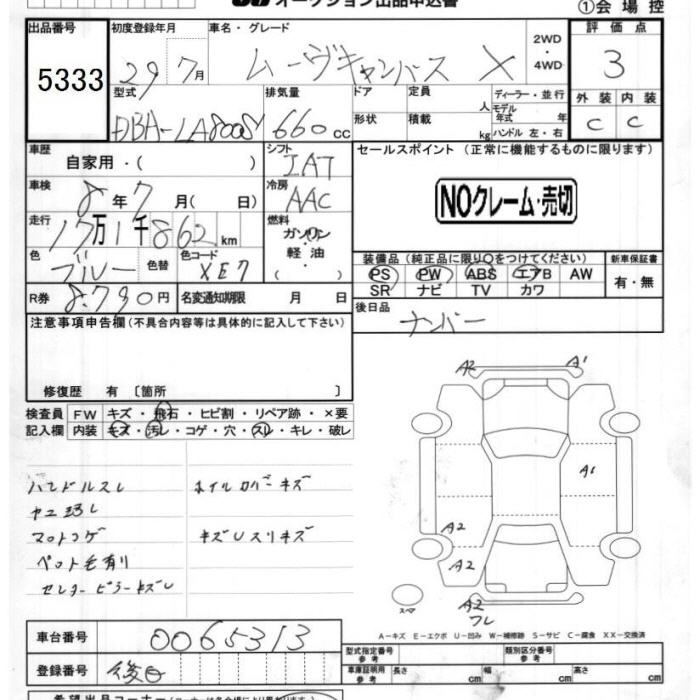 オークション出品申込書
①会場控
出品番号 初度登録年月 車名・グレード 2WD・4WD 評価点
5333 29 7月 ムーヴキャンバス X 3
型式 排気量 ドア 定員 人 ディーラー・並行
モデル年式 年
外装 内装
DBA-LA800S 660cc 形状 積載 kg ハンドル 左・右 C C
車歴 自家用・( ) シフト IAT セールスポイント (正常に機能するものに限ります)
車検 8年7月( 日) 冷房 AAC
NOクレーム・売切
走行 17万1千862km 燃料 ガソリン・軽油
色 ブルー 色替 色コード XE7
装備品 (純正品に限り○をつけてください) 新車保証書
PS PW ABS エアB AW 有・無
SR ナビ TV カワ
R券 8.790円 名変通知期限 月 日
後日品 ナンバー
注意事項申告欄(不具合内容等は具体的に記入して下さい)
修復歴 有 〔箇所 〕
検査員 FW キズ・飛石・ヒビ割・リペア跡・×要
記入欄 内装 キズ・汚レ・コゲ・穴・スレ・キレ・破レ
ハンドルスレ ホイルカバーキズ
マットコゲ キズUスリキズ
ペット毛有り
A2 A1
A1
A2
A2
スペア
A2
フレ
A-キズ E-エクボ U-凹み W-補修跡 S-サビ C-腐食 XX-交換済
車台番号 0065313
型式指定番号 参考 類別区分番号 参考
登録番号 後日
車庫証明用 参考 長さ cm 幅 cm 高さ cm
希望出品コーナー